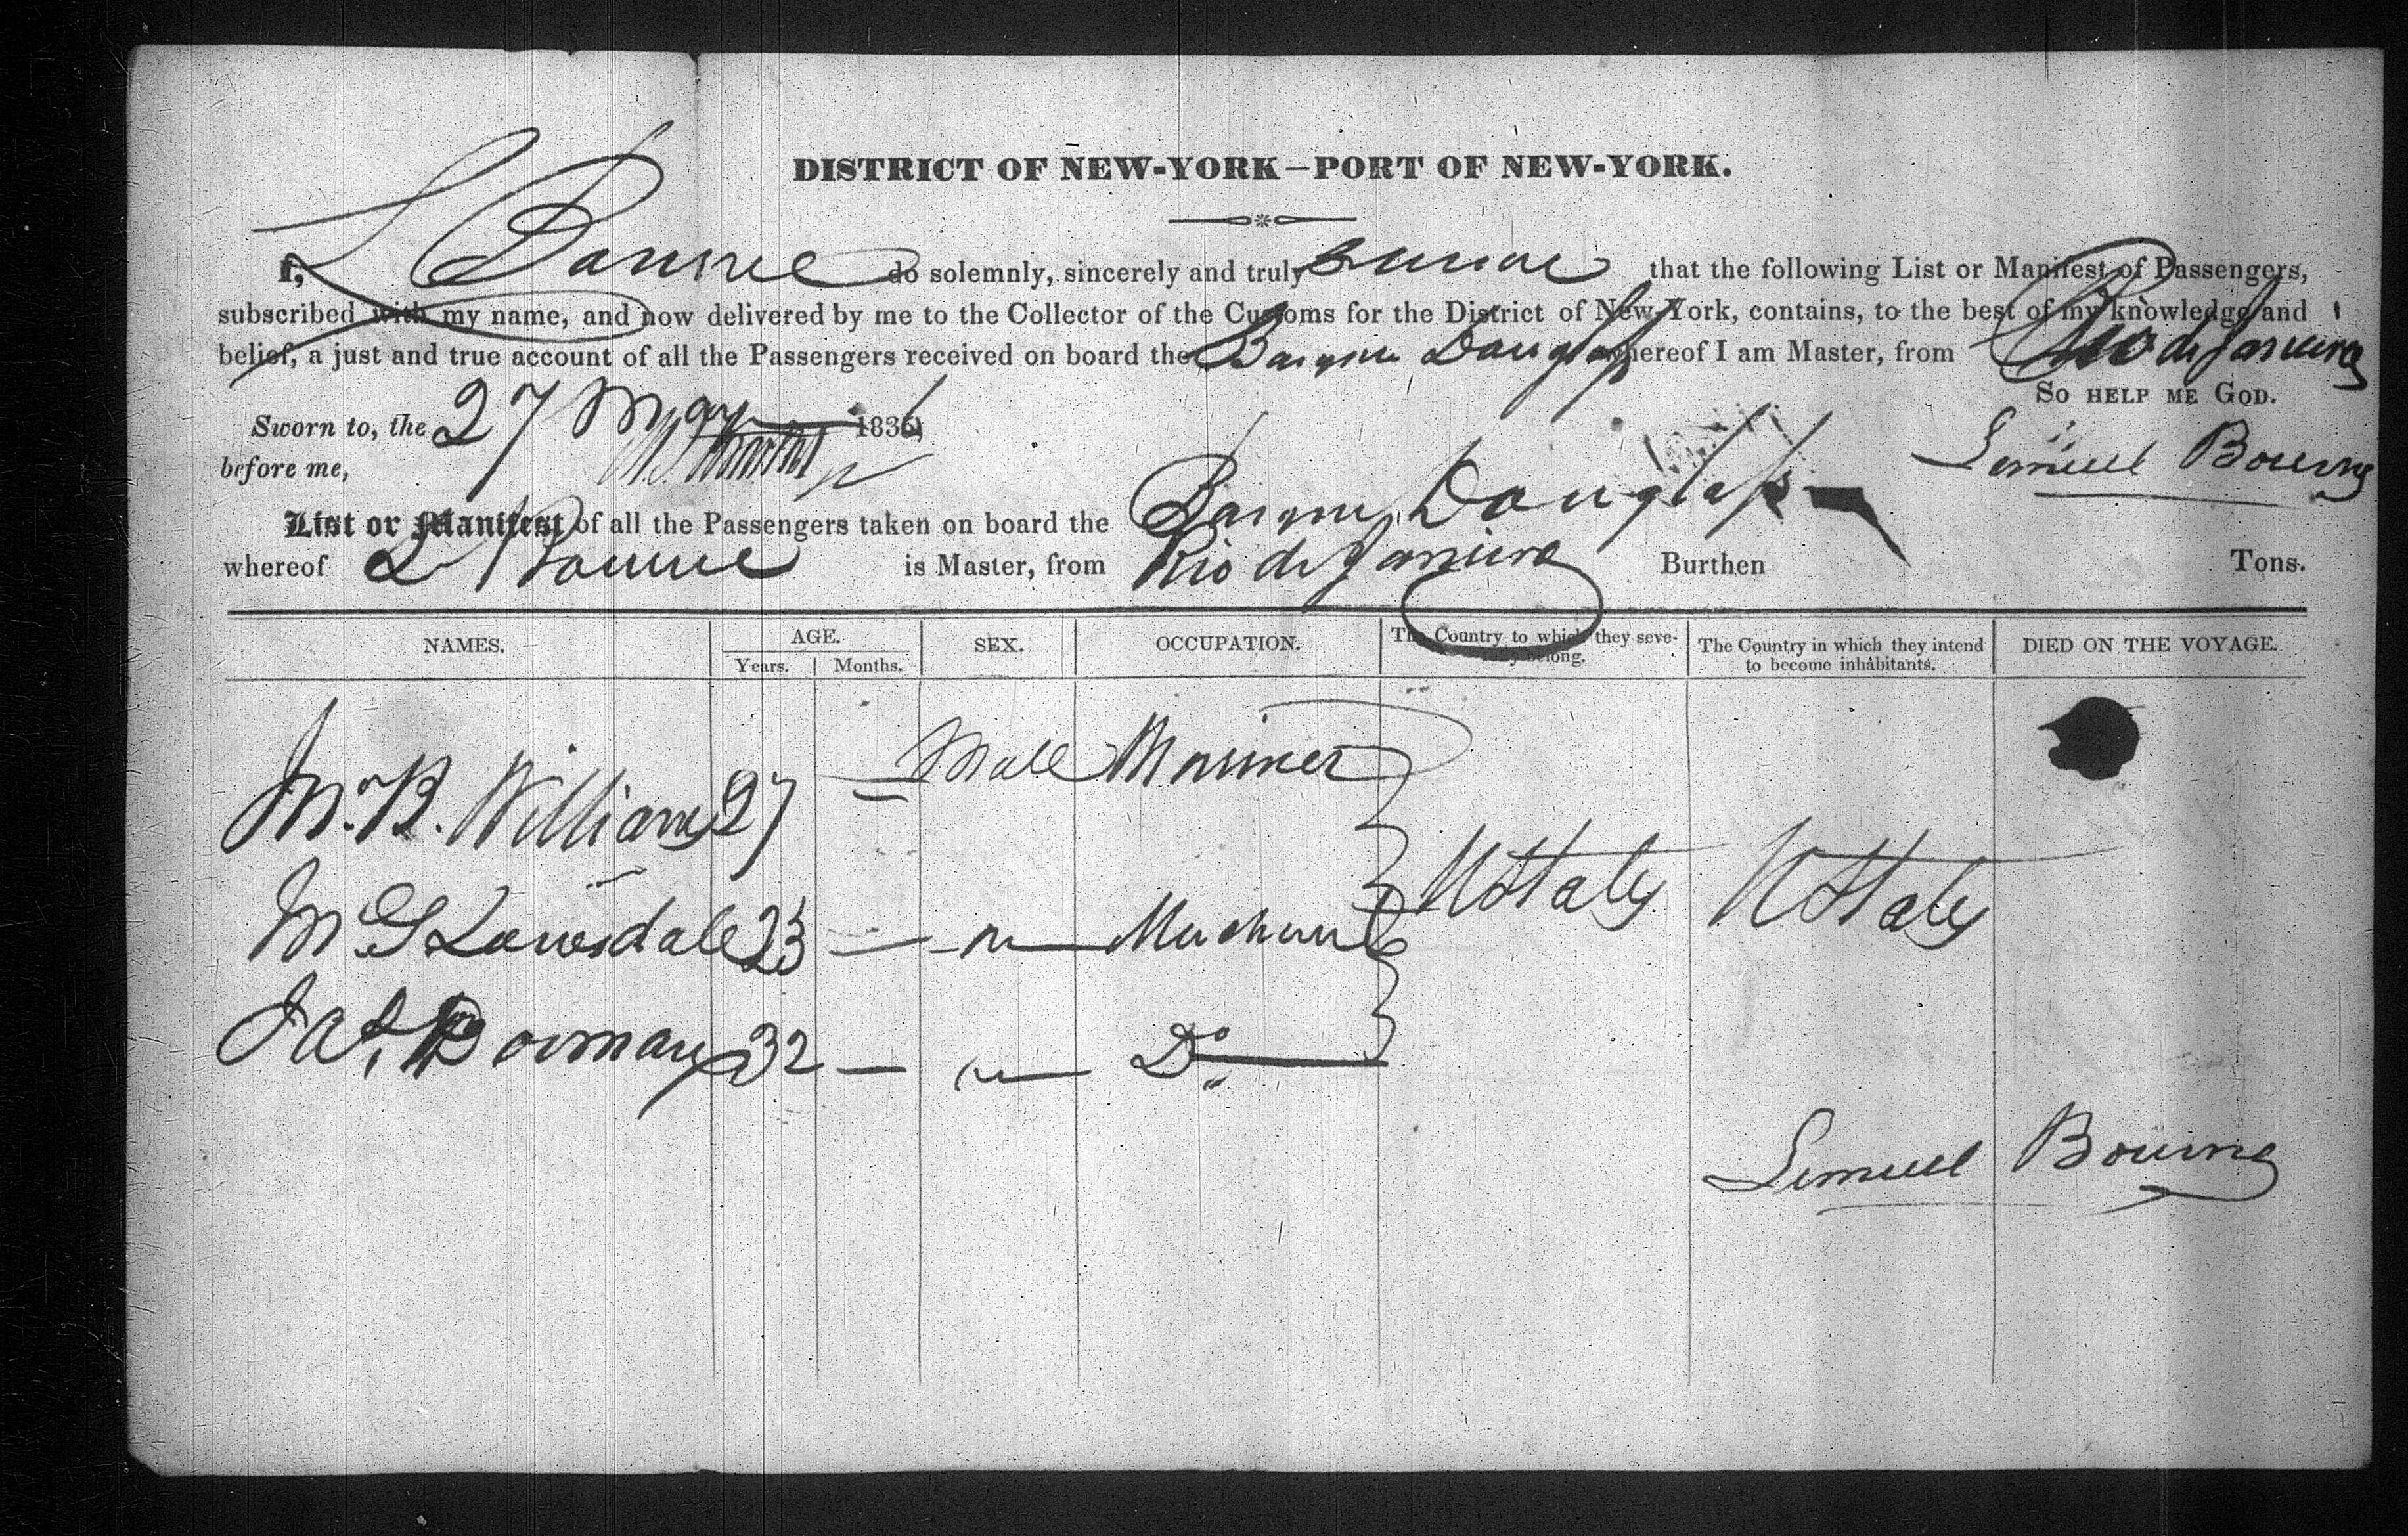 DISTRICT OF NEW-YORK—PORT OF NEW-YORK.
I, L Bourne do solemnly, sincerely and truly swear that the following List or Manifest of Passengers,
subscribed with my name, and now delivered by me to the Collector of the Customs for the District of New-York, contains, to the best of my knowledge and
belief, a just and true account of all the Passengers received on board the Barque Douglass whereof I am Master, from Rio de Janeiro
So HELP ME GOD.
Sworn to, the 27 May 1836
before me,
Lemuel Bourne
List or Manifest of all the Passengers taken on board the Barque Douglass
whereof L Bourne is Master, from Rio de Janeiro Burthen Tons.
NAMES. AGE. SEX. OCCUPATION. The Country to which they seve- The Country in which they intend DIED ON THE VOYAGE.
Years. Months. rally belong. to become inhabitants.
Mr. B. Williams 27 — Male Mariner
Mr G Lowndale 23 — " Merchant U States U States
Jas. Dorman 32 — " Do
Lemuel Bourne